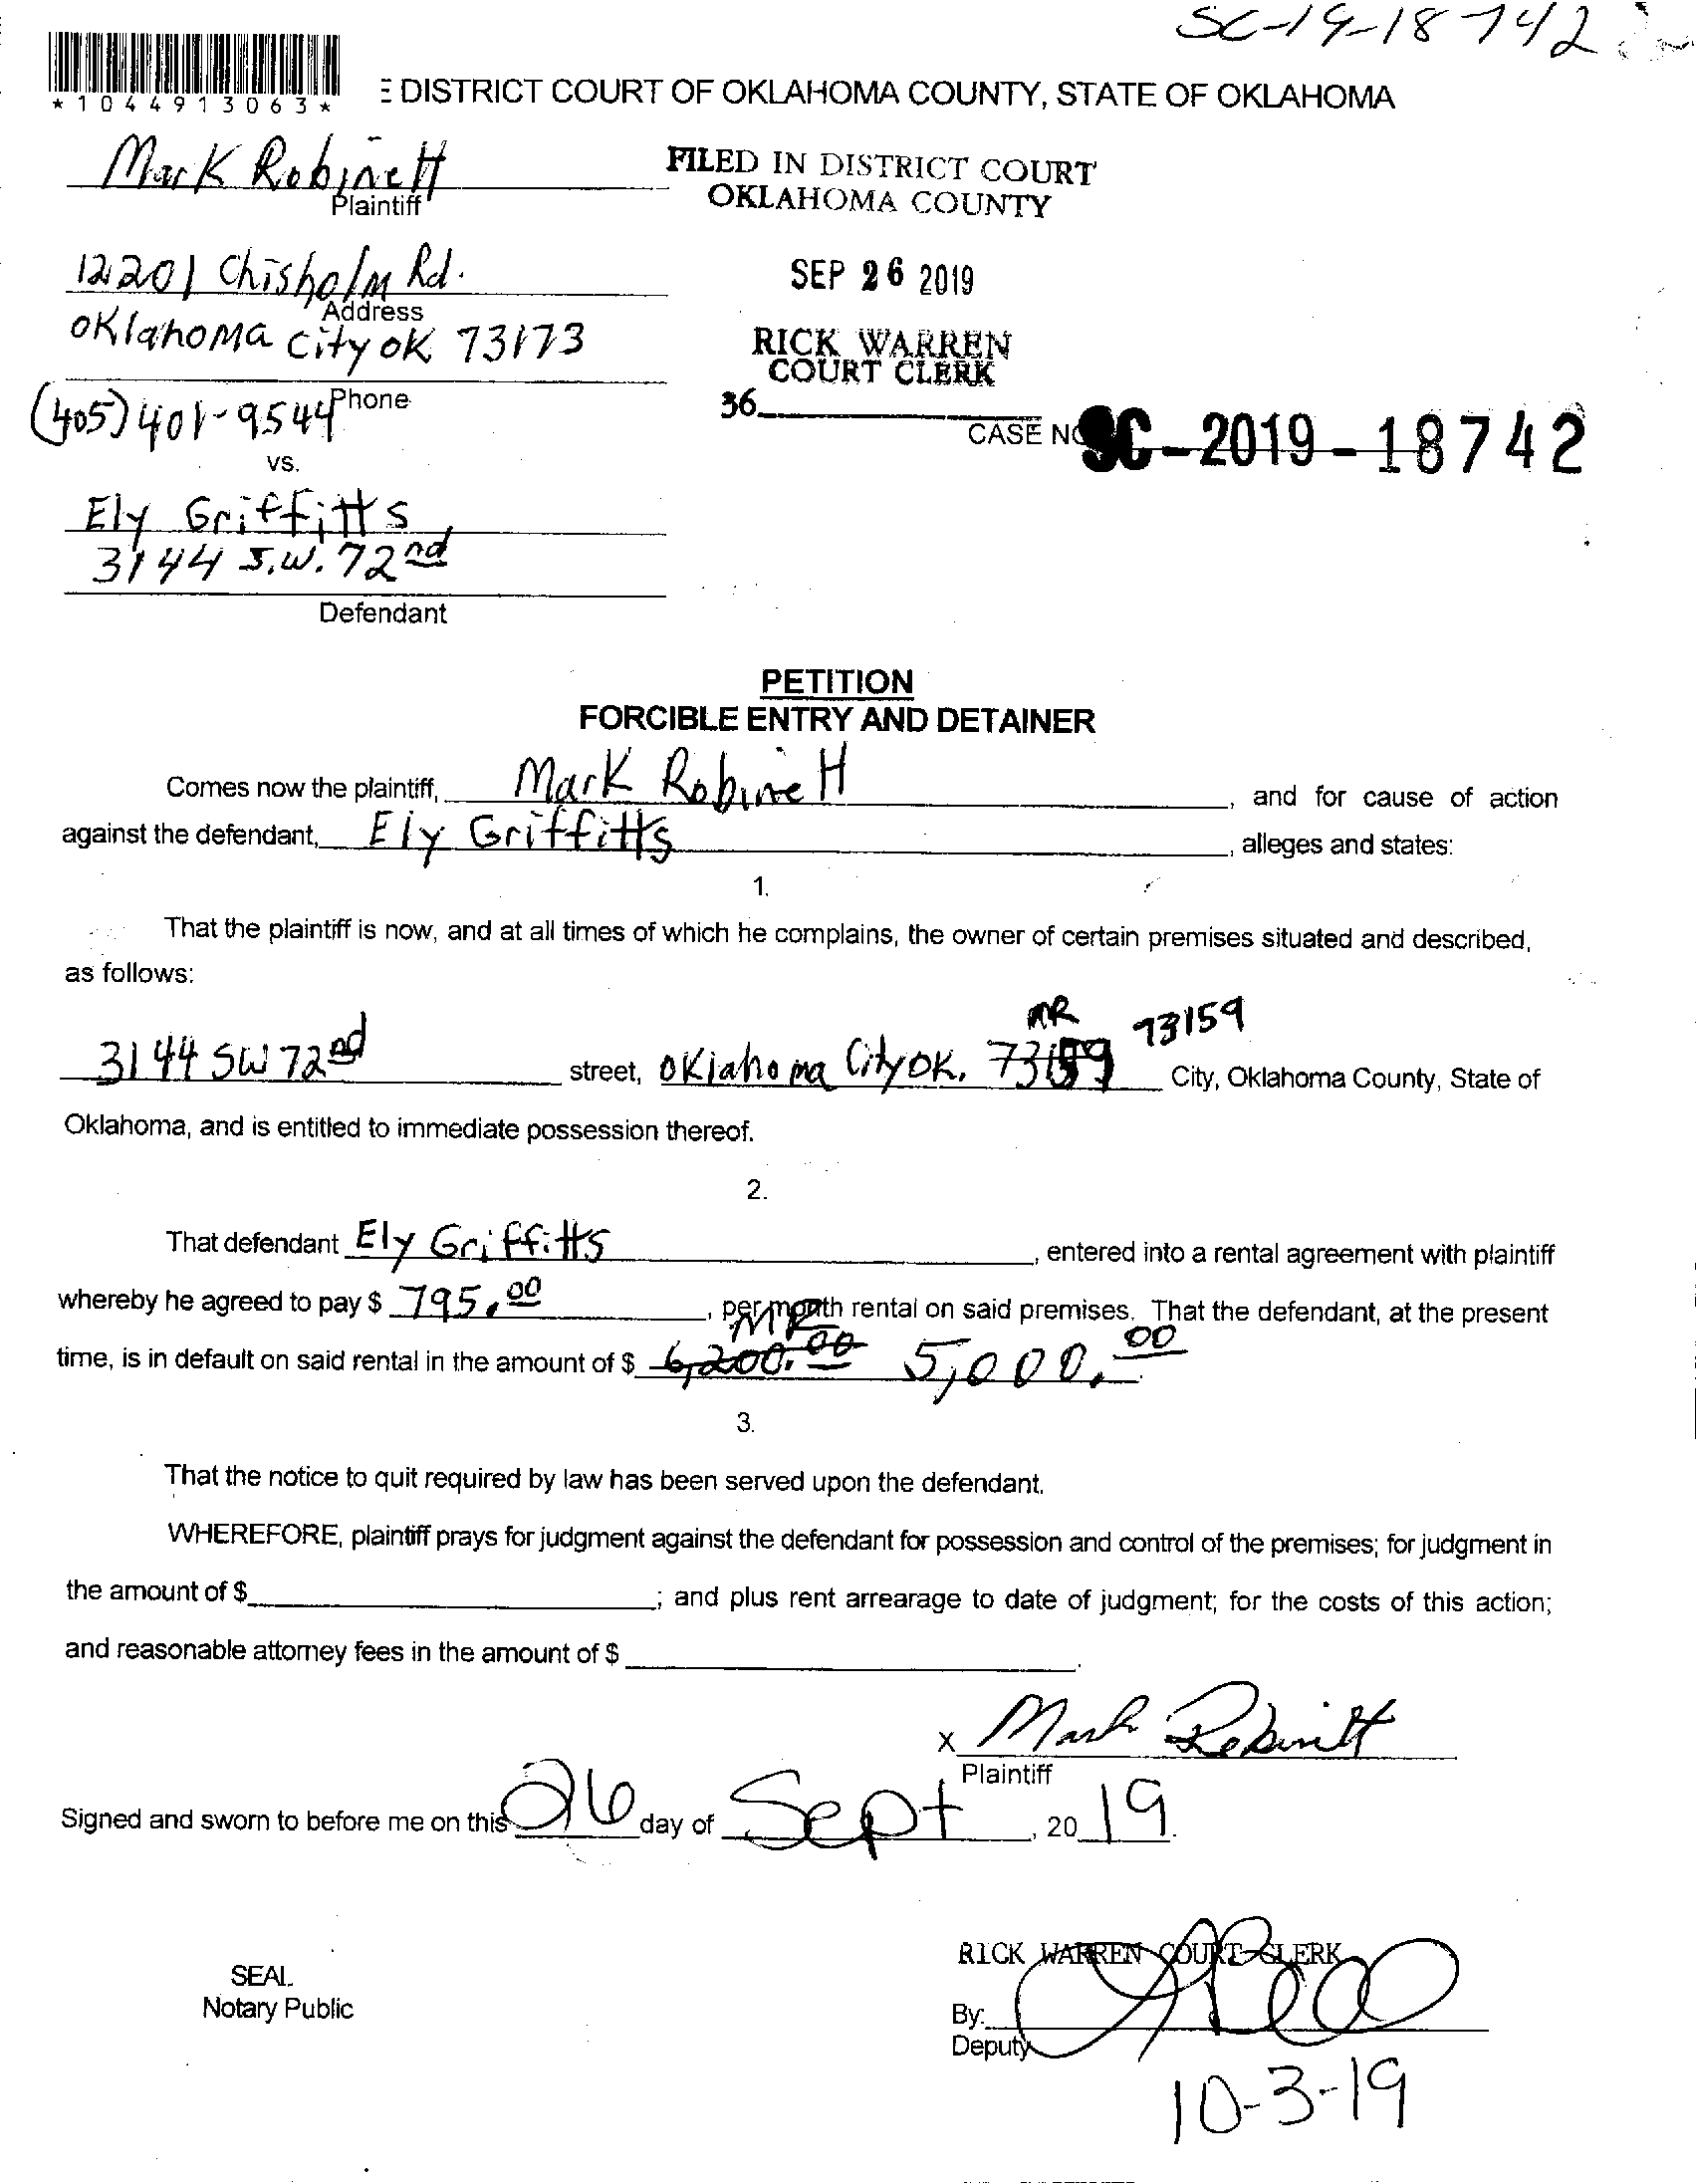 SC-19-18742
*1044913063*
E DISTRICT COURT OF OKLAHOMA COUNTY, STATE OF OKLAHOMA
Mark Robinett
Plaintiff
FILED IN DISTRICT COURT
OKLAHOMA COUNTY
12201 Chisholm Rd.
Address
SEP 26 2019
Oklahoma City OK 73173
RICK WARREN
COURT CLERK
Phone
(405) 401-9544
36
CASE NO SC-2019-18742
vs.
Ely Griffitts
3144 S.W. 72nd
Defendant
PETITION
FORCIBLE ENTRY AND DETAINER
Comes now the plaintiff, Mark Robinett, and for cause of action
against the defendant, Ely Griffitts, alleges and states:
1.
That the plaintiff is now, and at all times of which he complains, the owner of certain premises situated and described,
as follows:
MR 73159
3144 SW 72nd street, Oklahoma City OK. 73159 City, Oklahoma County, State of
Oklahoma, and is entitled to immediate possession thereof.
2.
That defendant Ely Griffitts, entered into a rental agreement with plaintiff
whereby he agreed to pay $ 795.00, per month rental on said premises. That the defendant, at the present
MR
time, is in default on said rental in the amount of $ 6,200.00 5,000.00
3.
That the notice to quit required by law has been served upon the defendant.
WHEREFORE, plaintiff prays for judgment against the defendant for possession and control of the premises; for judgment in
the amount of $ ; and plus rent arrearage to date of judgment; for the costs of this action;
and reasonable attorney fees in the amount of $ .
x Mark Robinett
Plaintiff
Signed and sworn to before me on this 26 day of Sept, 2019.
RICK WARREN COURT CLERK
SEAL
Notary Public
By:
Deputy
10-3-19